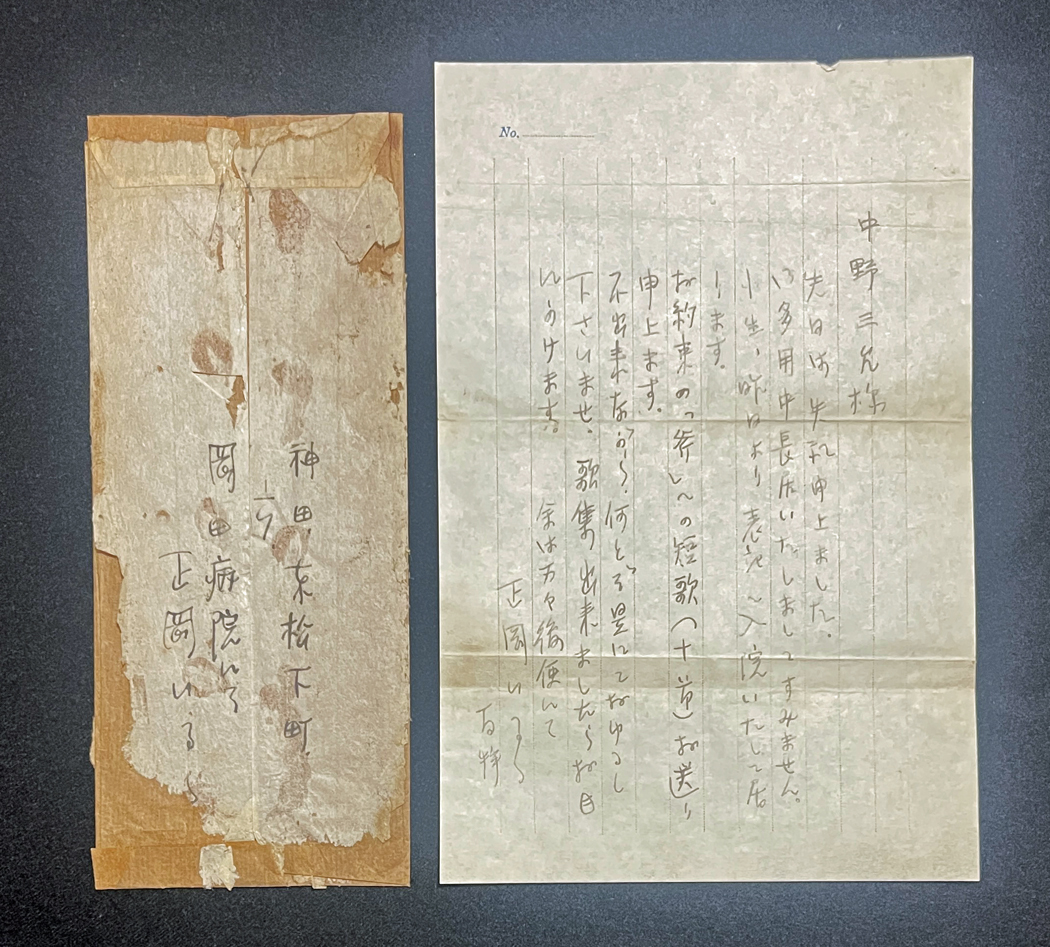 神田東松下町
岡田病院にて
正岡いるゝ
No.
中野三允様
先日は失礼申上ました。
御多用中長居いたしましてすみません。
小生、昨日より表記へ入院いたして居
ります。
お約束の「」への短歌(十首)お送り
申上ます。
不出来ながら、何とぞにておゆるし
下さいませ。歌集出来ましたらお目
にかけます。 余は万々後便にて
正岡いるゝ
百拝